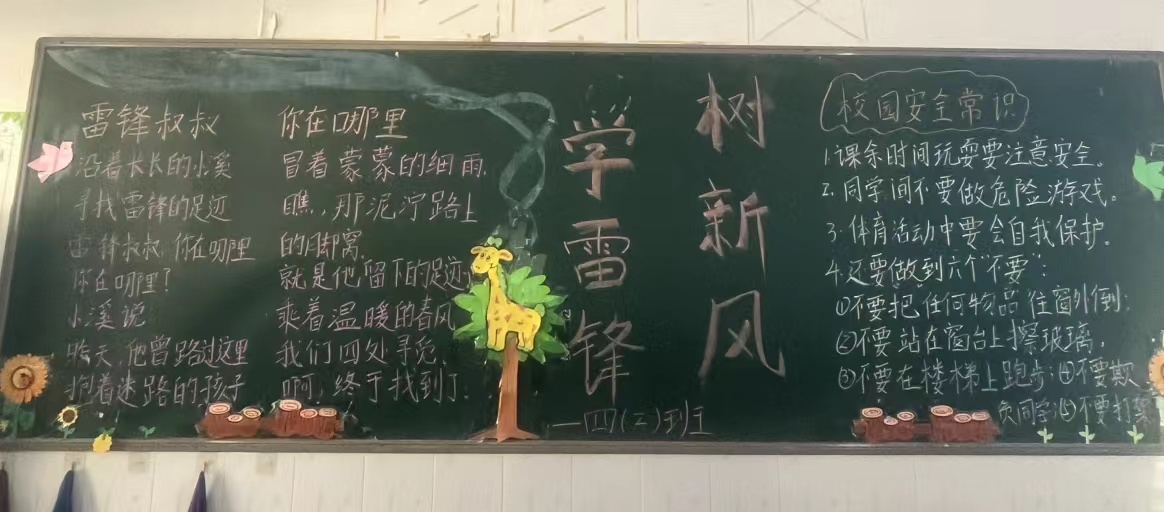 雷锋叔叔 你在哪里
沿着长长的小溪
寻找雷锋的足迹
雷锋叔叔,你在哪里
你在哪里?
小溪说
昨天,他曾路过这里
抱着迷路的孩子
冒着蒙蒙的细雨,
瞧,那泥泞路上
的脚窝,
就是他留下的足迹
乘着温暖的春风
我们四处寻觅,
啊,终于找到了.
学雷锋
树新风
—四(二)班
校园安全常识
1.课余时间玩耍要注意安全。
2.同学间不要做危险游戏。
3.体育活动中要会自我保护。
4.还要做到六个“不要”:
①不要把任何物品往窗外倒;
②不要站在窗台上擦玻璃,
③不要在楼梯上跑步;④不要欺
负同学;⑤不要打架